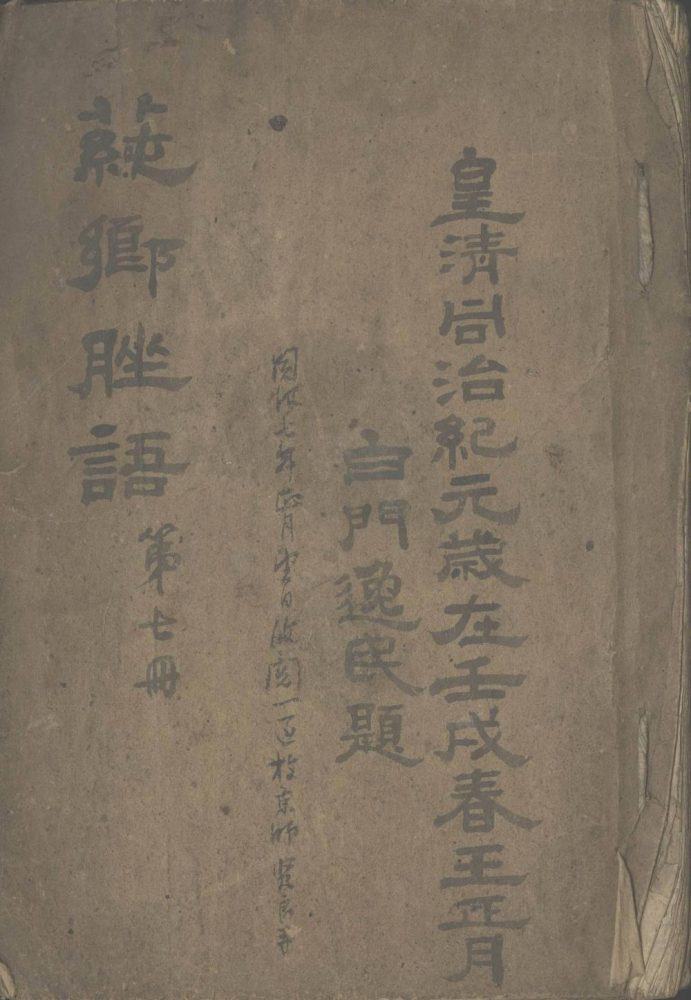 皇清同治紀元歲在壬戌春王正月
白門逸民題
同治七年 月 日 閱一 於京師
鄉脞語
第七冊